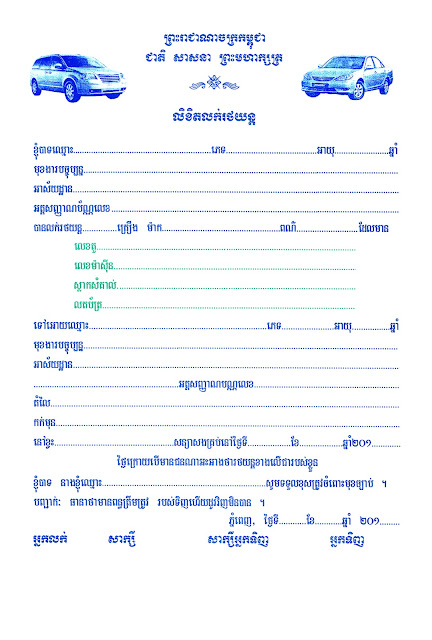 ព្រះរាជាណាចក្រកម្ពុជា
ជាតិ សាសនា ព្រះមហាក្សត្រ
លិខិតលក់រថយន្ត
ខ្ញុំបាទឈ្មោះ..............................ភេទ..............................អាយុ....................ឆ្នាំ
មុខងារបច្ចុប្បន្ន..............................
អាស័យដ្ឋាន..............................
អត្តសញ្ញាណប័ណ្ណលេខ..............................
បានលក់រថយន្ត............គ្រឿង ម៉ាក..............................ពណ៌....................ដែលមាន
លេខតួ..............................
លេខម៉ាស៊ីន..............................
ស្លាកសំគាល់..............................
លតប័ត្រ..............................
ទៅអោយឈ្មោះ..............................ភេទ....................អាយុ..............ឆ្នាំ
មុខងារបច្ចុប្បន្ន..............................
អាស័យដ្ឋាន..............................
..............................អត្តសញ្ញាណបណ្ណលេខ..............................
តំលៃ..............................
កក់មុន..............................
នៅខ្វះ..............................សន្យាសងគ្រប់នៅថ្ងៃទី..............ខែ..............ឆ្នាំ២០១..........
ថ្ងៃក្រោយបើមានជនណាអះអាងថារថយន្តខាងលើជារបស់ខ្លួន
ខ្ញុំបាទ នាងខ្ញុំឈ្មោះ..............................សូមទទួលខុសត្រូវចំពោះមុខច្បាប់ ។
បញ្ជាក់: ធានាថាមានពន្ធត្រឹមត្រូវ របស់ទិញហើយដូរវិញមិនបាន ។
ភ្នំពេញ, ថ្ងៃទី............ខែ............ឆ្នាំ ២០១........
អ្នកលក់ សាក្សី សាក្សីអ្នកទិញ អ្នកទិញ